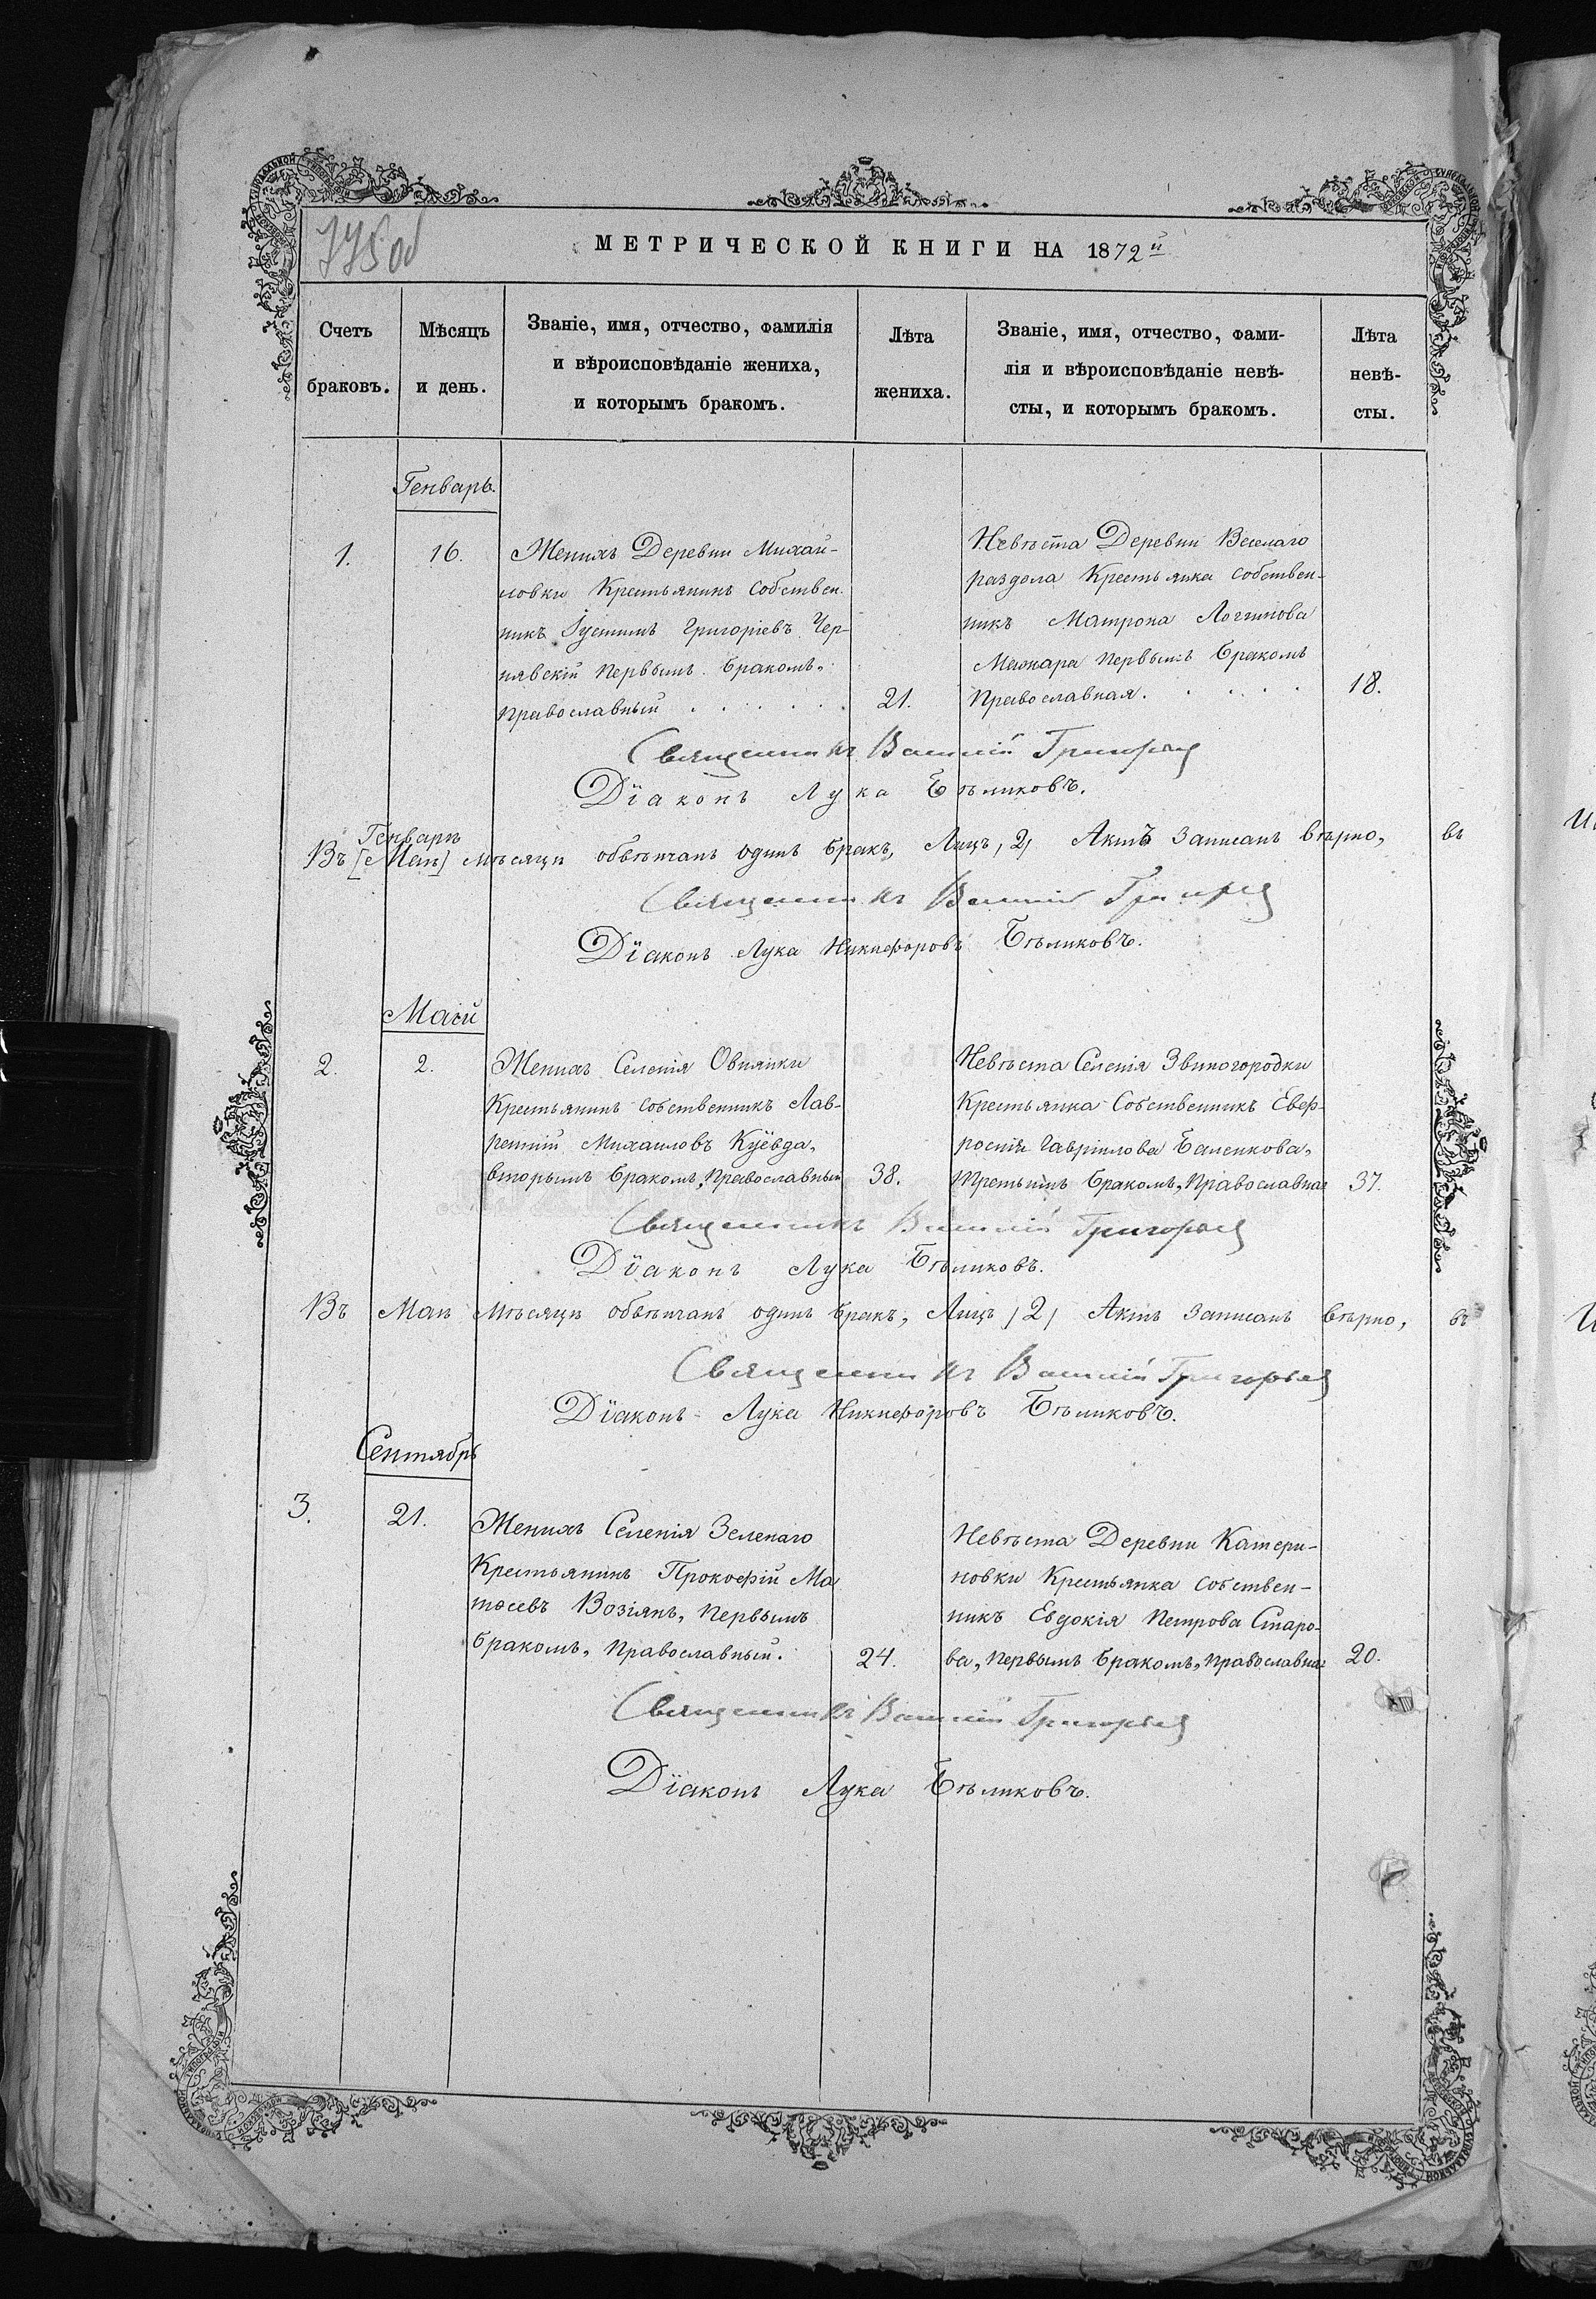 775 об
МЕТРИЧЕСКОЙ КНИГИ НА 1872й
Счетъ браковъ.
Мѣсяцъ и день.
Званіе, имя, отчество, фамилія
и вѣроисповѣданіе жениха,
и которымъ бракомъ.
Лѣта жениха.
Званіе, имя, отчество, фами-
лія и вѣроисповѣданіе невѣ-
сты, и которымъ бракомъ.
Лѣта невѣ-
сты.
Генварь.
1.
16.
Женихъ Деревни Михай-
ловки Крестьянинъ собствен-
никъ Іустинъ Григоріевъ Чер-
нявскій первымъ бракомъ,
Православный
21.
Невѣста Деревни Веселаго
раздола Крестьянка собствен-
никъ Матрона Логгинова
первымъ бракомъ
Православная.
18.
Священникъ Василій Григорьев
Діаконъ Лука Бѣликовъ.
Генварѣ
Въ [Маѣ] мѣсяцѣ обвѣнчанъ одинъ бракъ, Лицъ /2/ Актъ записанъ вѣрно, въ
Священникъ Василій Григорьев
Діаконъ Лука Никифоровъ Бѣликовъ.
Маій
2.
2.
Женихъ Селенія Овнянки
Крестьянинъ собственникъ Лав-
рентій Михаиловъ Куёвда,
вторымъ бракомъ, Православный
38.
Невѣста Селенія Звиногородки
Крестьянка Собственникъ Евф-
росинія Гавріилова Баленкова,
третьимъ бракомъ, Православная
37.
Священникъ Василій Григорьев
Діаконъ Лука Бѣликовъ.
Въ Маѣ мѣсяцѣ обвѣнчанъ одинъ бракъ, Лицъ /2/ Актъ записанъ вѣрно, въ
Священникъ Василій Григорьев
Діаконъ Лука Никифоровъ Бѣликовъ.
Сентябрь
3.
21.
Женихъ Селенія Зеленаго
Крестьянинъ Прокофій Ма
тѳеевъ Возіянъ, первымъ
бракомъ, Православный.
24.
Невѣста Деревни Катери-
новки Крестьянка собствен-
никъ Евдокія Петрова Старо-
ва, первымъ бракомъ, Православная
20.
Священникъ Василій Григорьев
Діаконъ Лука Бѣликовъ.